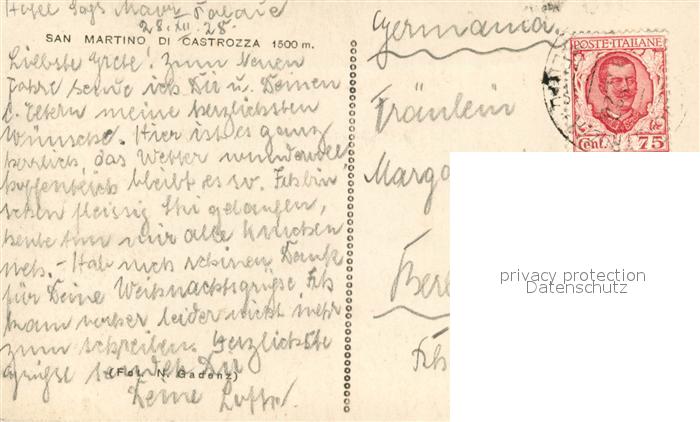 Hotel Sass Maor Palace
28. XII. 25.
SAN MARTINO DI CASTROZZA 1500 m.
Liebste Grete! Zum Neuen
Jahre sende ich Dir u. Deinen
l. Eltern meine herzlichsten
Wünsche. Hier ist es ganz
herrlich, das Wetter wundervoll
hoffentlich bleibt es so. Ich bin
schon fleissig Ski gelaufen,
heute tun mir alle Knochen
weh. - Hab noch schönen Dank
für Deine Weihnachtsgrüsse Ich
kam vorher leider nicht mehr
zum schreiben. Herzlichste
Grüsse sendet Dir
(Fot. N. Gadenz)
Deine
Germania.
Fräulein
Marga
Berl
POSTE·ITALIANE
Cent. 75
privacy protection
Datenschutz